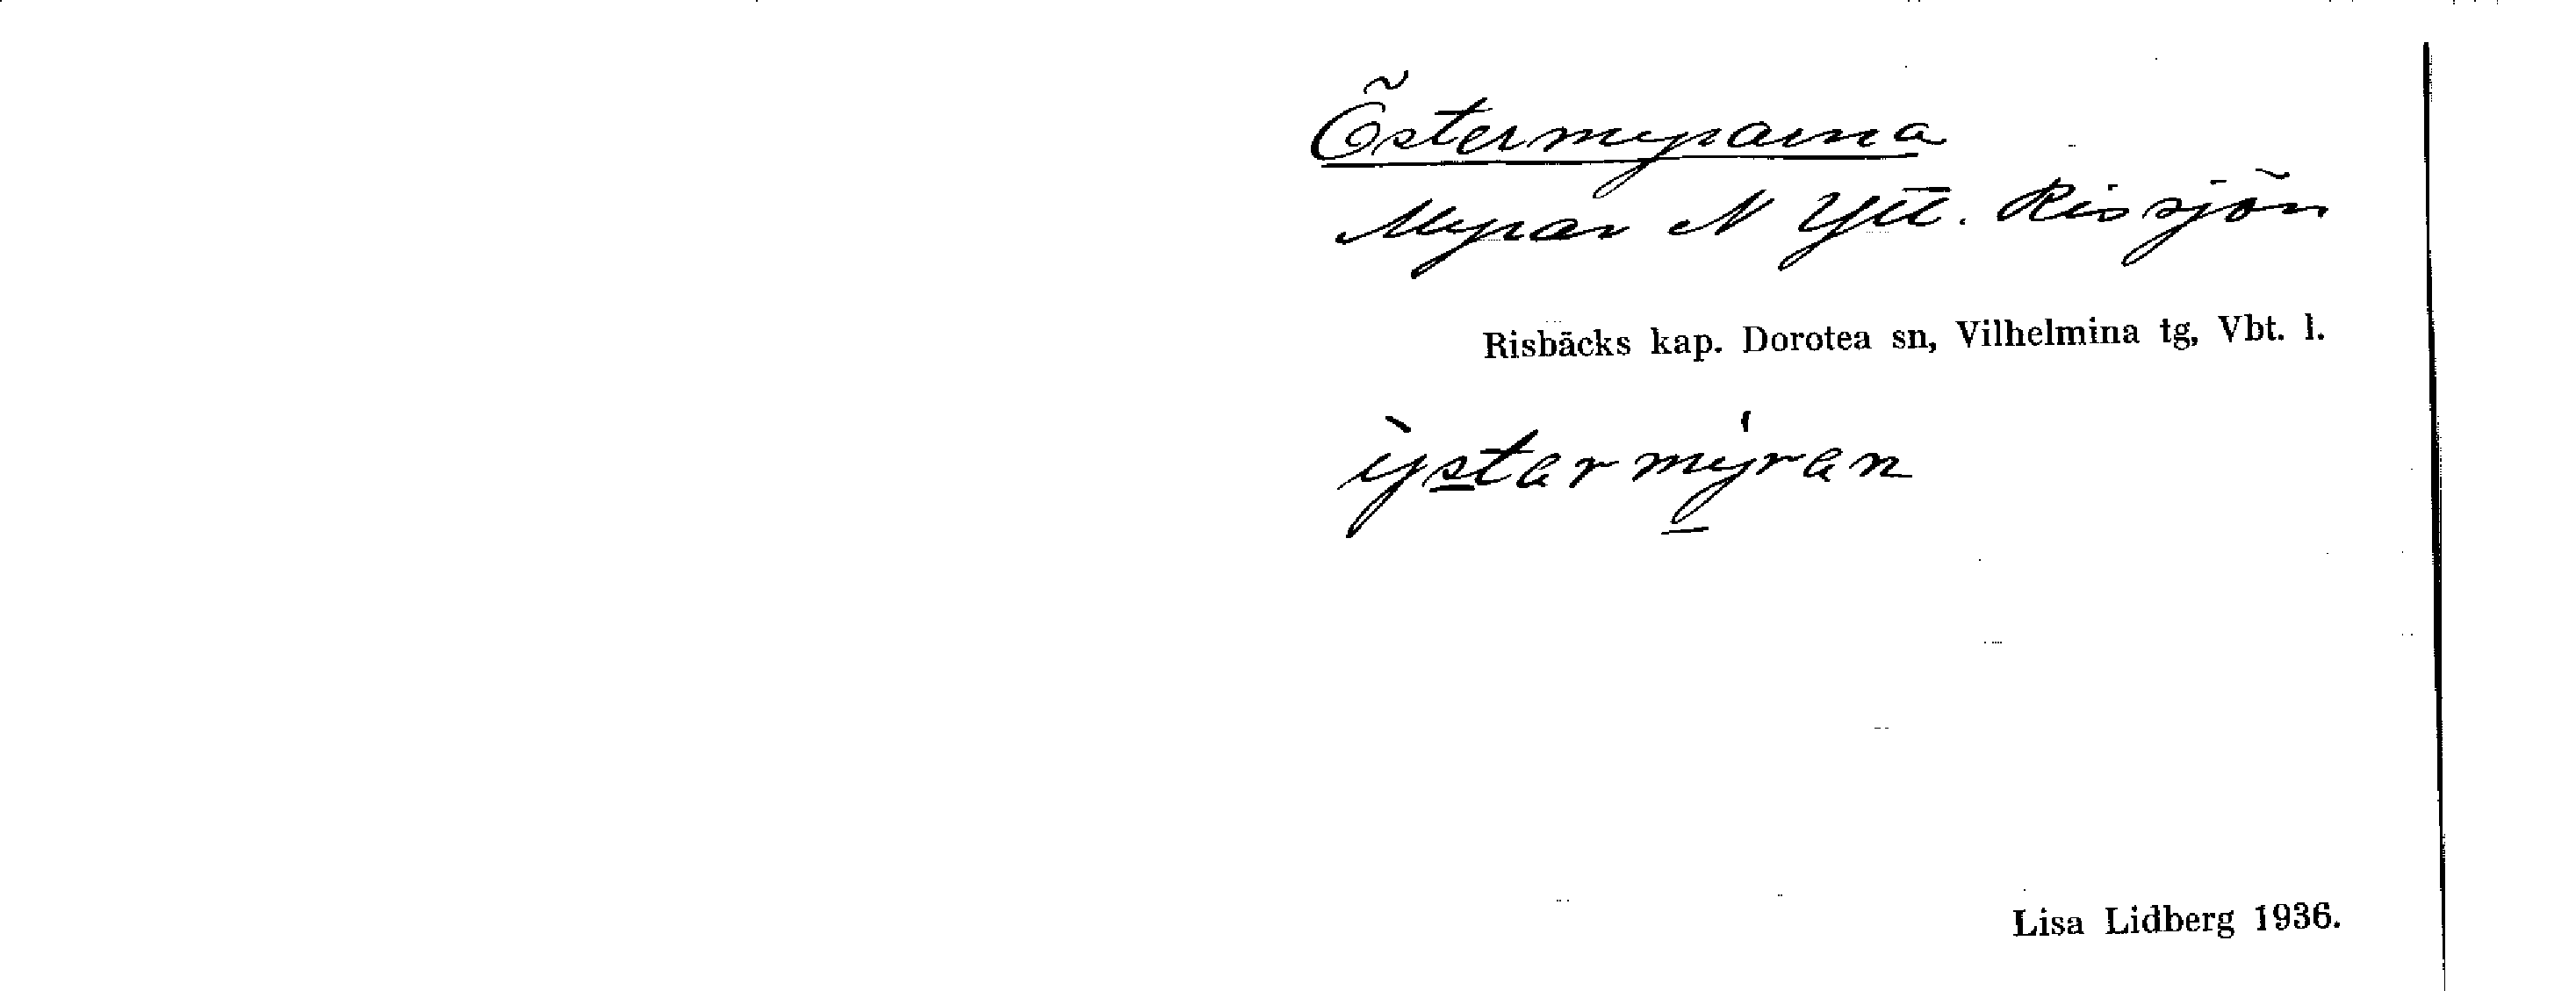 Östermyrarna
Myrar N Ytt. Rissjön
Risbäcks kap. Dorotea sn, Vilhelmina tg, Vbt. l.
ỳstarmýran
Lisa Lidberg 1936.